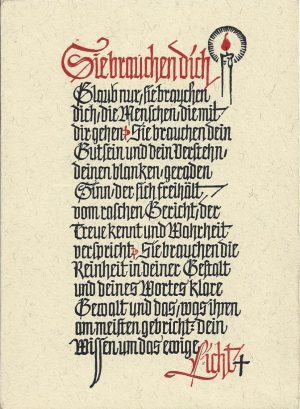 Sie brauchen dich
Glaub nur, sie brauchen
dich, die Menschen, die mit
dir gehen. Sie brauchen dein
Gutsein und dein Verstehn,
deinen blanken, geraden
Sinn, der sich freihält
vom raschen Gericht, der
Treue kennt und Wahrheit
verspricht. Sie brauchen die
Reinheit in deiner Gestalt
und deines Wortes klare
Gewalt und das, was ihnen
am meisten gebricht: dein
Wissen um das ewige
Licht